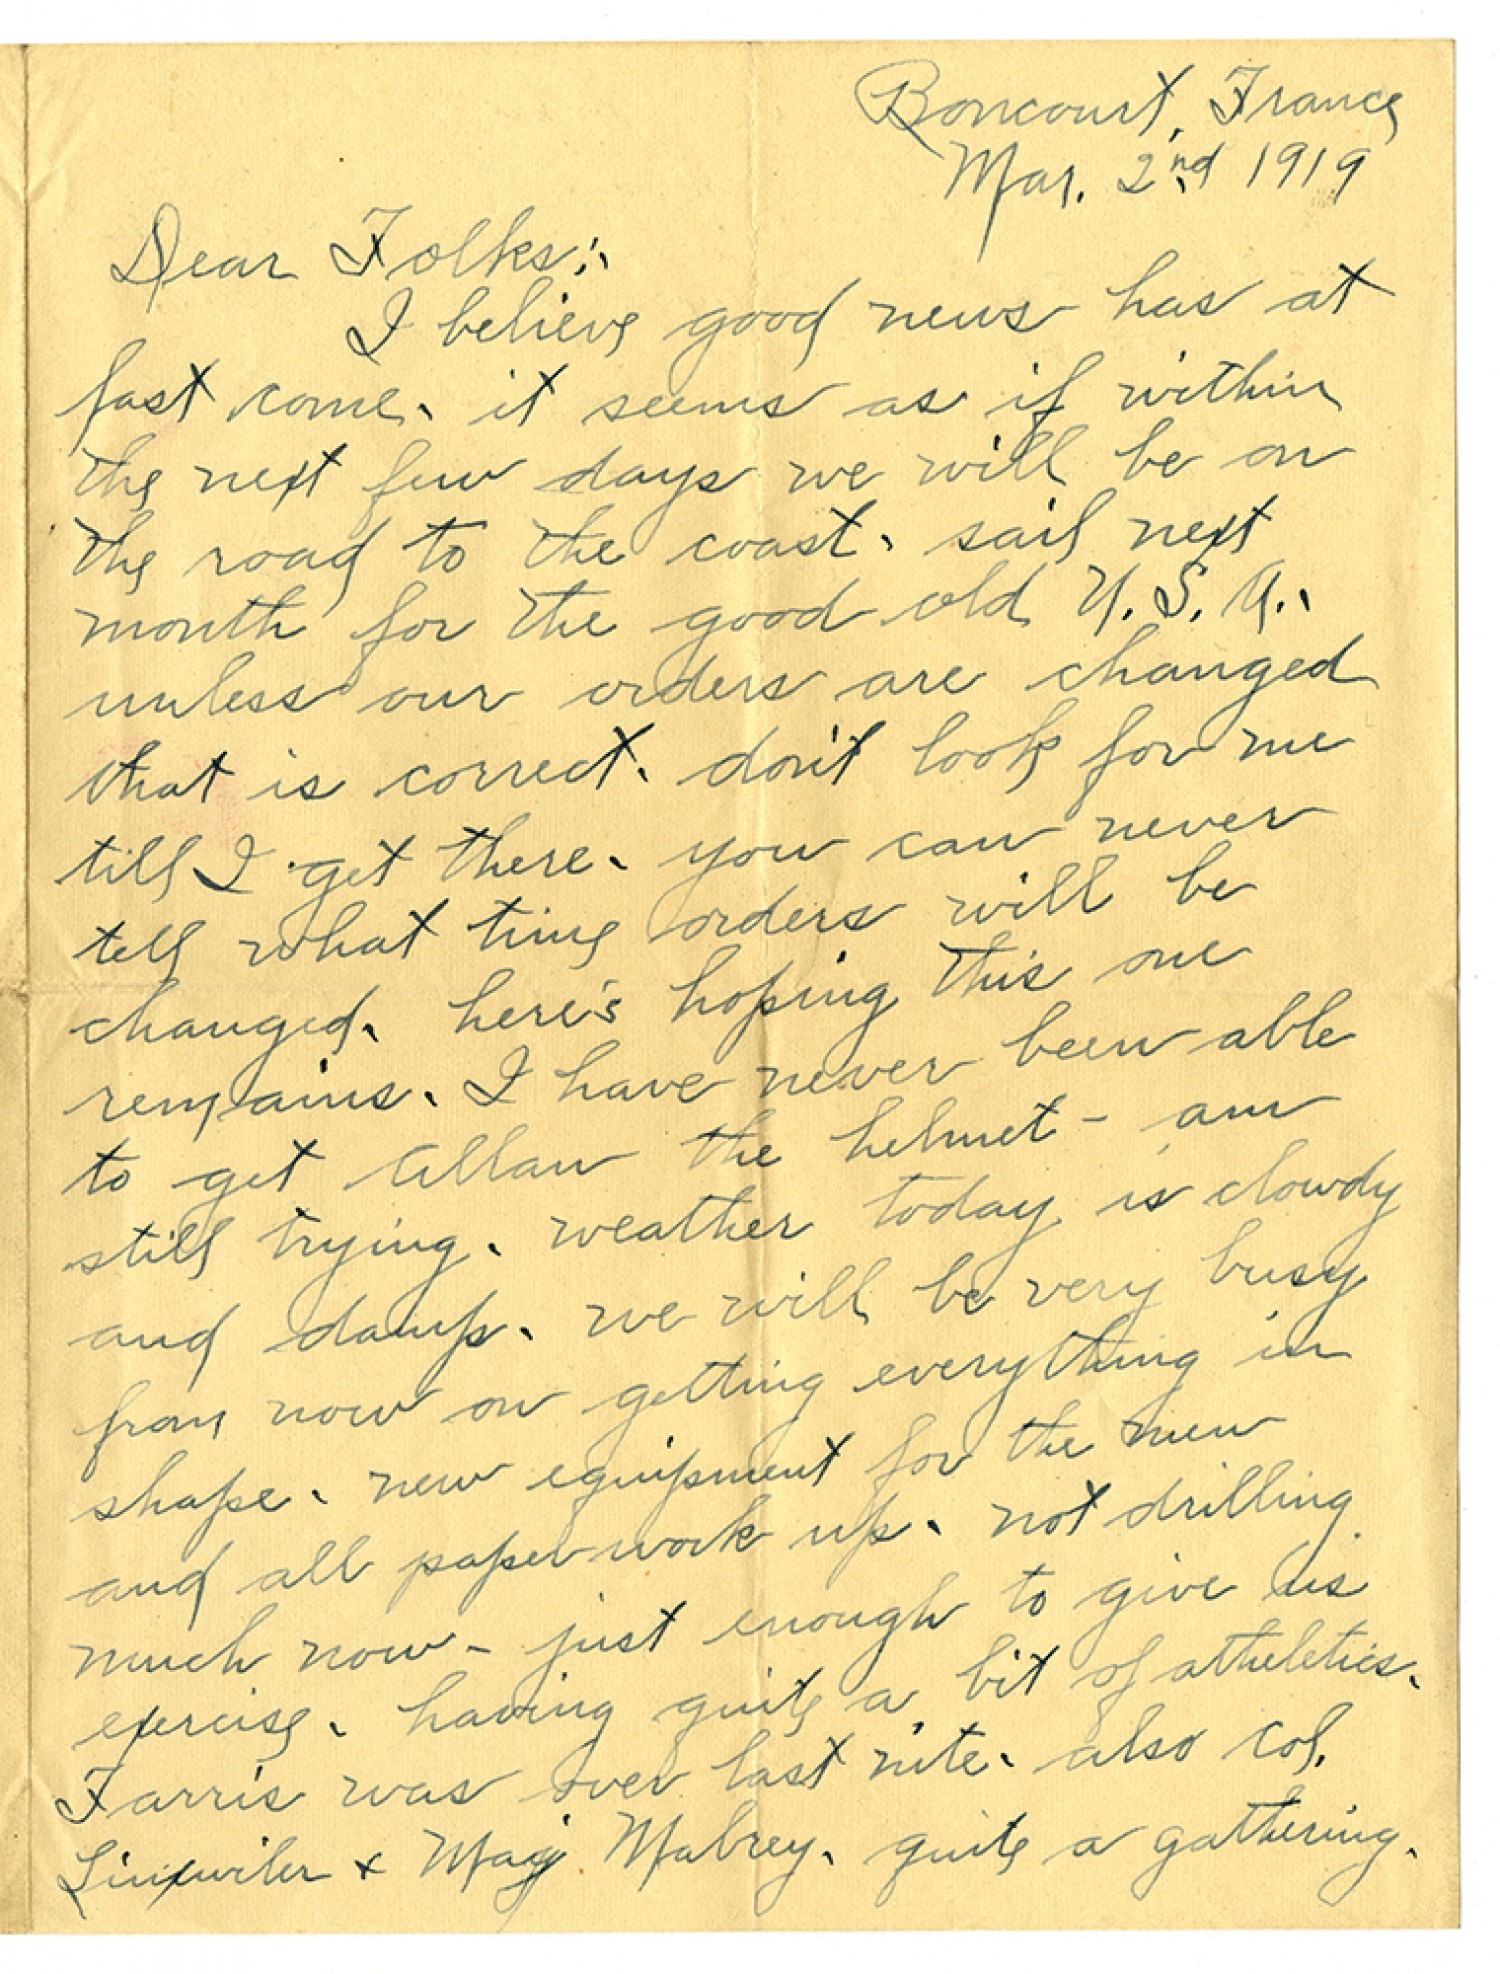 Boncourt, France
Mar. 2nd 1919
Dear Folks:
I believe good news has at
last come. it seems as if within
the next few days we will be on
the road to the coast. sail next
month for the good old U.S.A.
unless our orders are changed
that is correct. don't look for me
till I get there. you can never
tell what time orders will be
changed. here's hoping this one
remains. I have never been able
to get Allan the helmet - am
still trying. weather today is cloudy
and damp. we will be very busy
from now on getting everything in
shape. new equipment for the men
and all paper work up. not drilling
much now - just enough to give us
exercise. having quite a bit of atheletics.
Farris was over last nite. also Col.
Linxwiler & Maj Mabrey. quite a gathering.